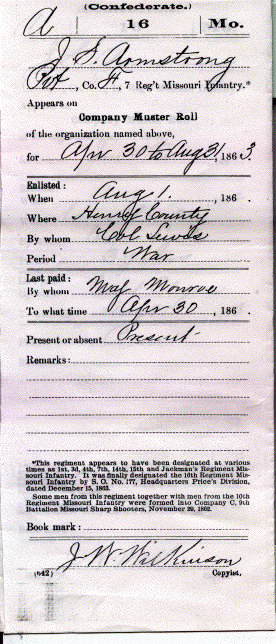 (Confederate.)
A 16 Mo.
J. S. Armstrong
Pvt, Co. F, 7 Reg't Missouri Infantry.*
Appears on
Company Muster Roll
of the organization named above,
for Apr 30 to Aug 31, 1863.
Enlisted:
When Aug 1., 186 .
Where Henry County
By whom Col Lewis
Period War
Last paid:
By whom Maj Monroe
To what time Apr 30, 186 .
Present or absent Present
Remarks:
*This regiment appears to have been designated at various
times as 1st, 3d, 4th, 7th, 14th, 15th and Jackman's Regiment Mis-
souri Infantry. It was finally designated the 16th Regiment Mis-
souri Infantry by S. O. No. 177, Headquarters Price's Division,
dated December 15, 1863.
Some men from this regiment together with men from the 10th
Regiment Missouri Infantry were formed into Company C, 9th
Battalion Missouri Sharp Shooters, November 29, 1862.
Book mark:
J. W. Wilkinson
(642) Copyist.